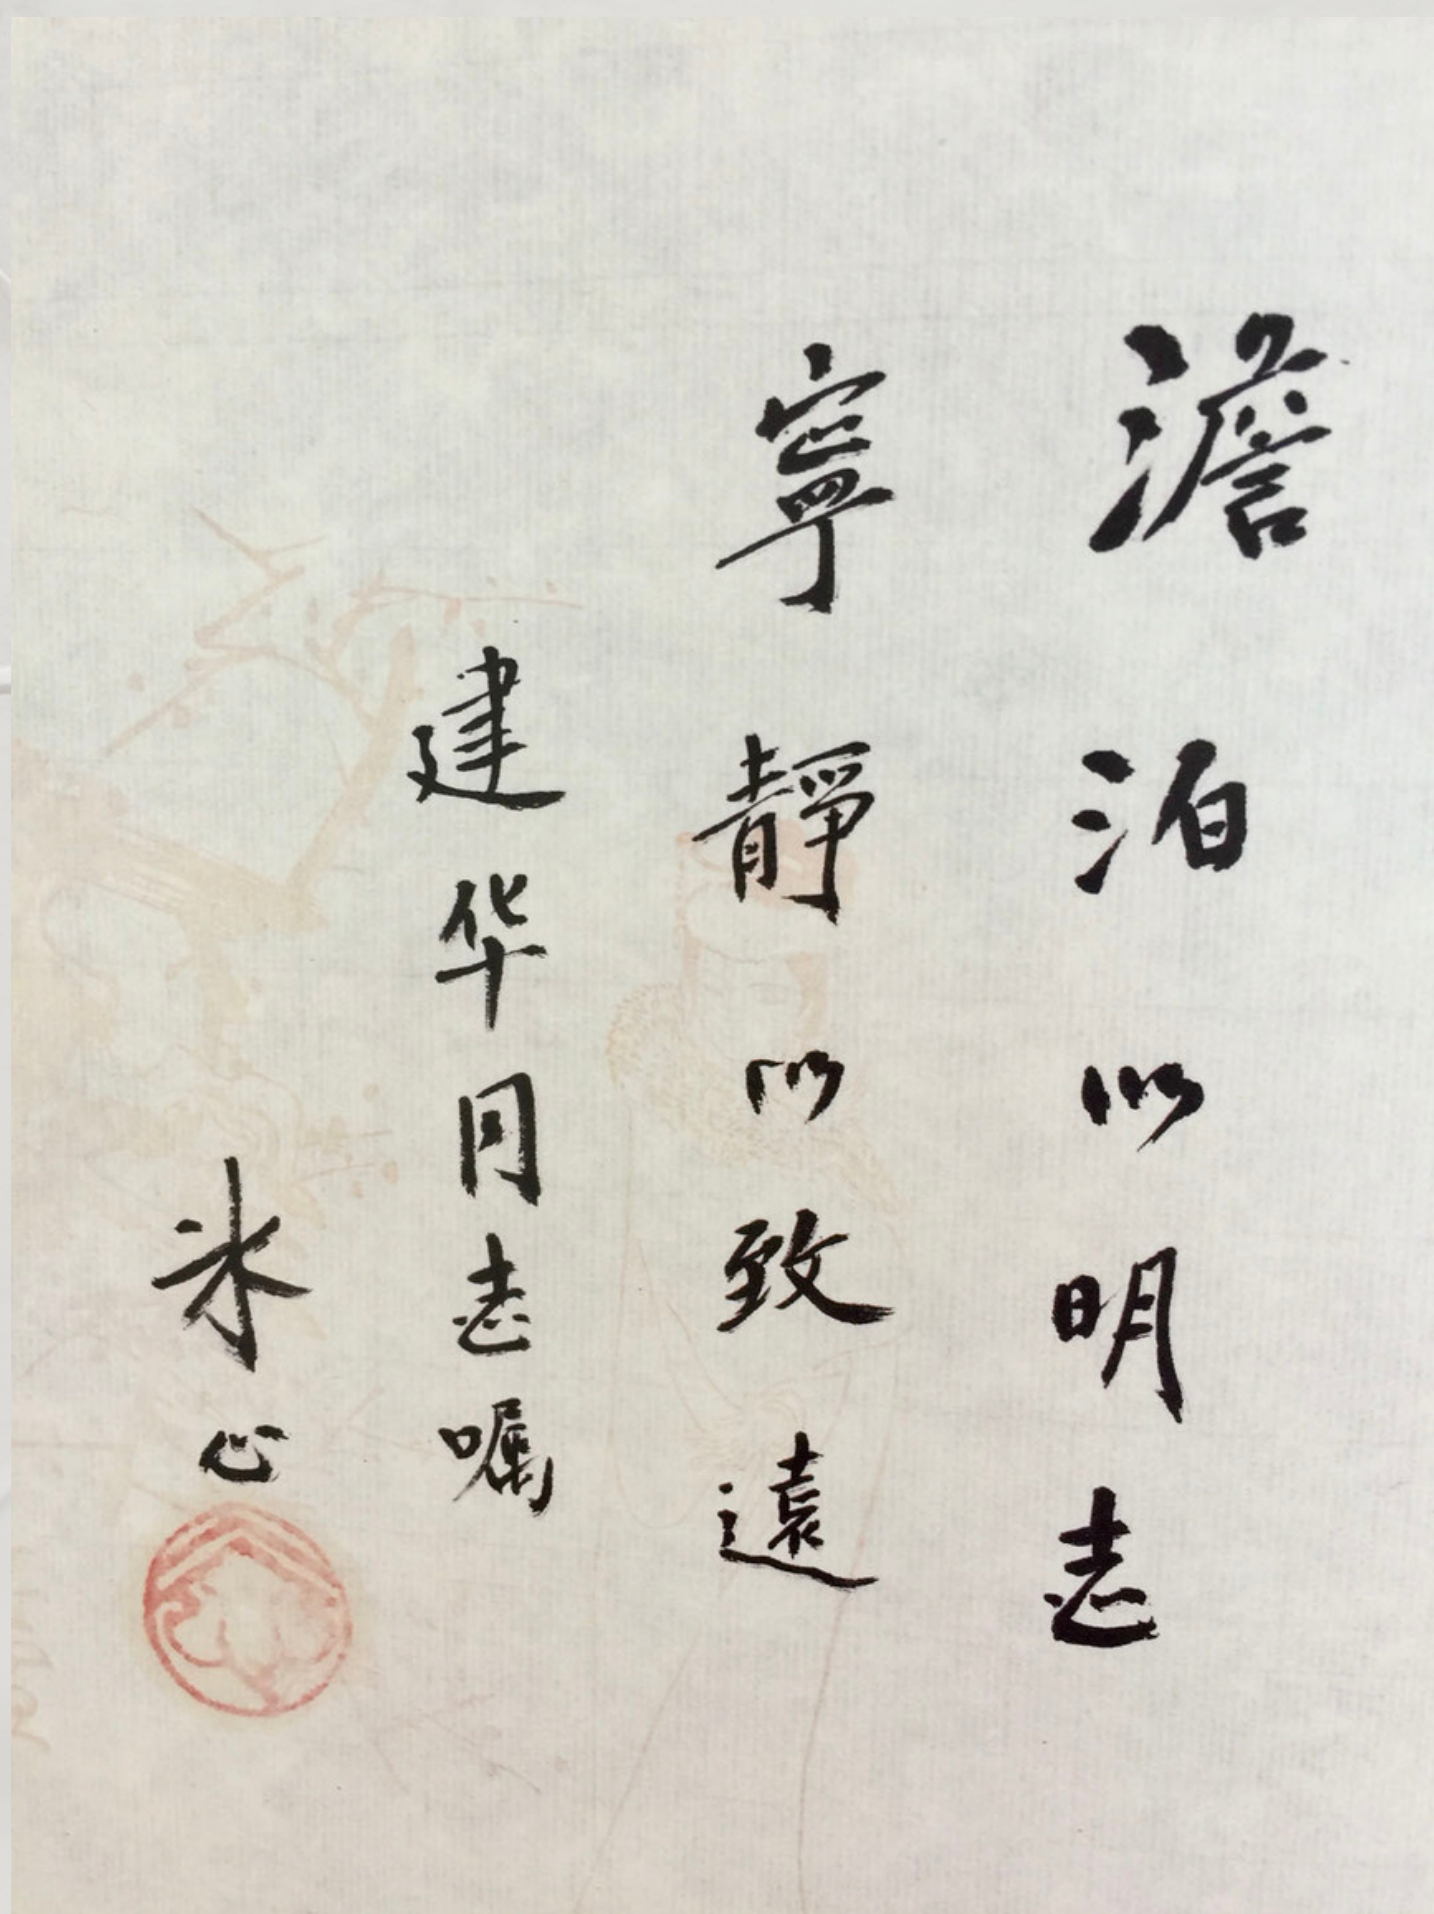 澹泊以明志
寧靜以致遠
建华同志嘱
冰心